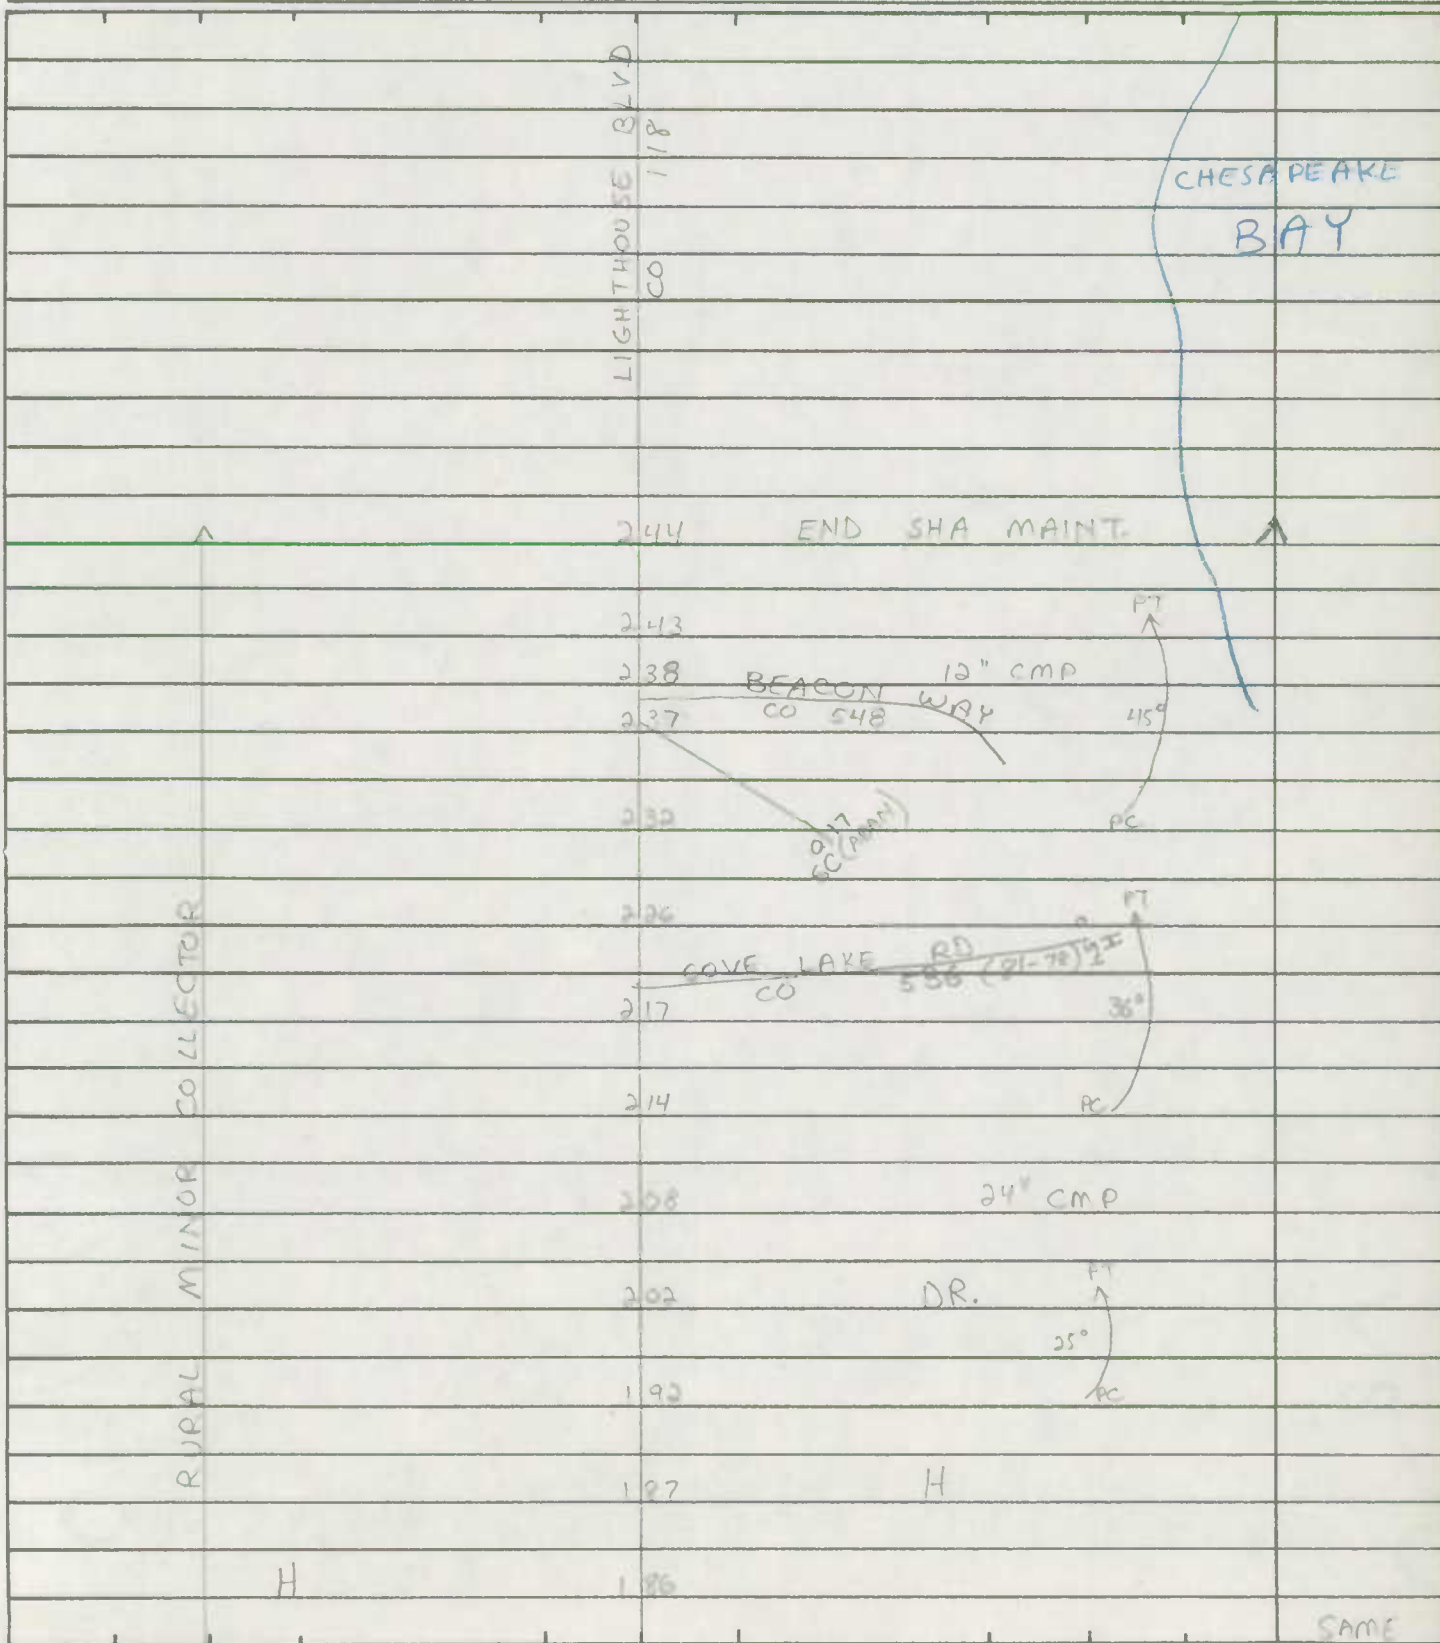 LIGHTHOUSE BLVD
CO 118
CHESAPEAKE
BAY
2.44 END SHA MAINT.
2.43 PT
2.38 BEACON WAY 12" CMP
CO 548
2.37 45°
2.32 PC
2.26 PT
COVE LAKE RD
CO 596 (81-78)
2.17 36°
2.14 PC
2.08 24" CMP
2.02 DR. PT
25°
1.92 PC
RURAL MINOR COLLECTOR
1.87 H
H 1.86
SAME